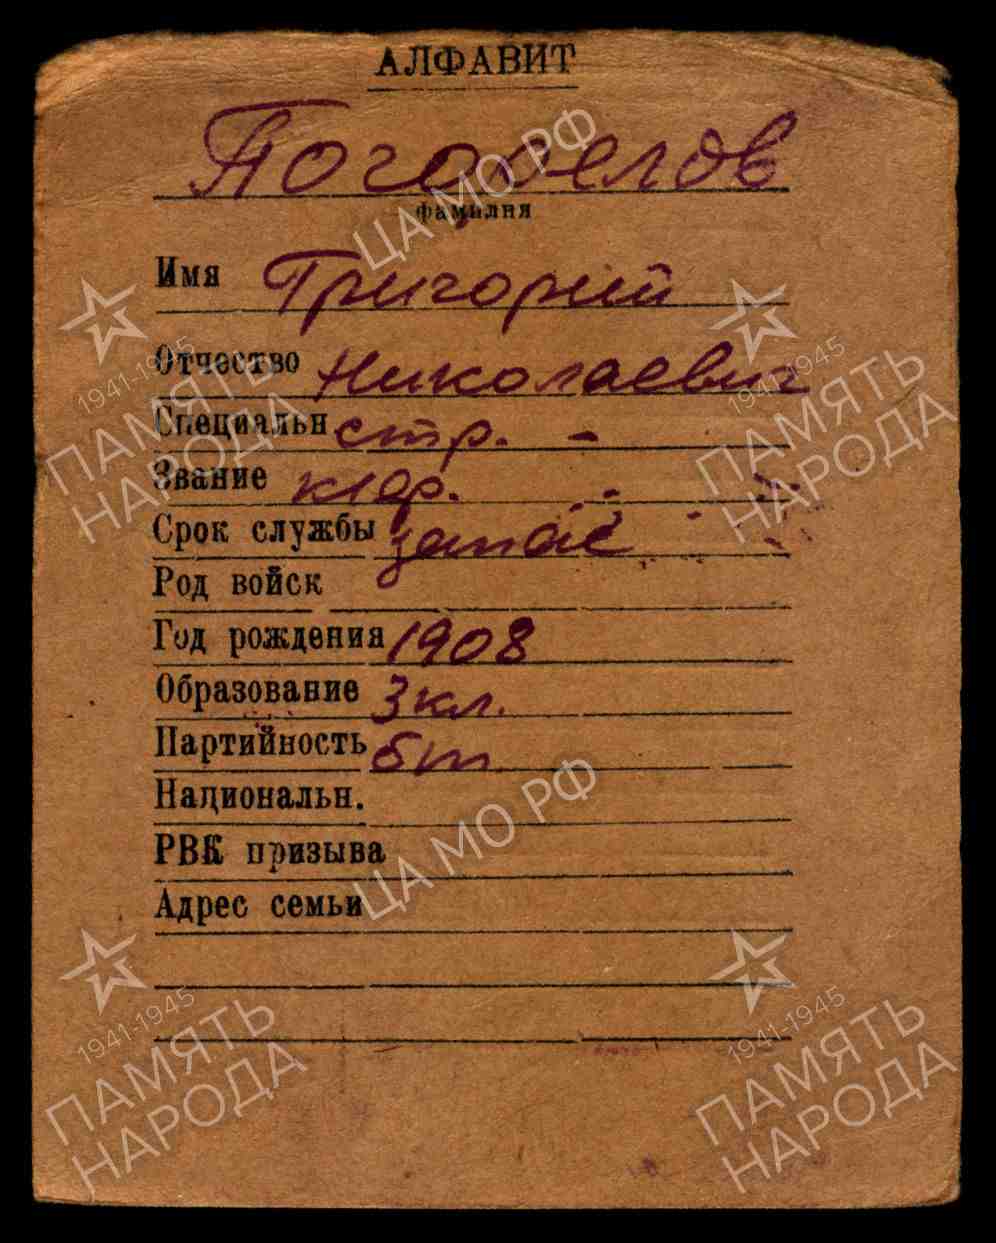 АЛФАВИТ
Погорелов
фамилия
ЦА МО РФ
Имя Григорий
Отчество Николаевич
1941-1945
1941-1945
Специальн стр. -
ПАМЯТЬ
НАРОДА
ПАМЯТЬ
НАРОДА
Звание
Срок службы запас
Род войск
Год рождения 1908
Образование 3 кл.
Партийность бп
Национальн.
ЦА МО РФ
РВК призыва
Адрес семьи
1941-1945
1941-1945
ПАМЯТЬ
НАРОДА
ПАМЯТЬ
НАРОДА